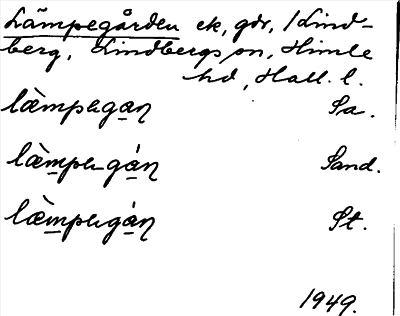 Lämpegården ek, gdr, /Lind-
berg, Lindbergs sn, Himle
hd, Hall. l.
læ̀mpɐga̲ɳ Sa.
læ̀m̲pɐgá̲ɳ Sand.
læ̀m̲pɐgá̲ɳ St.
1949.